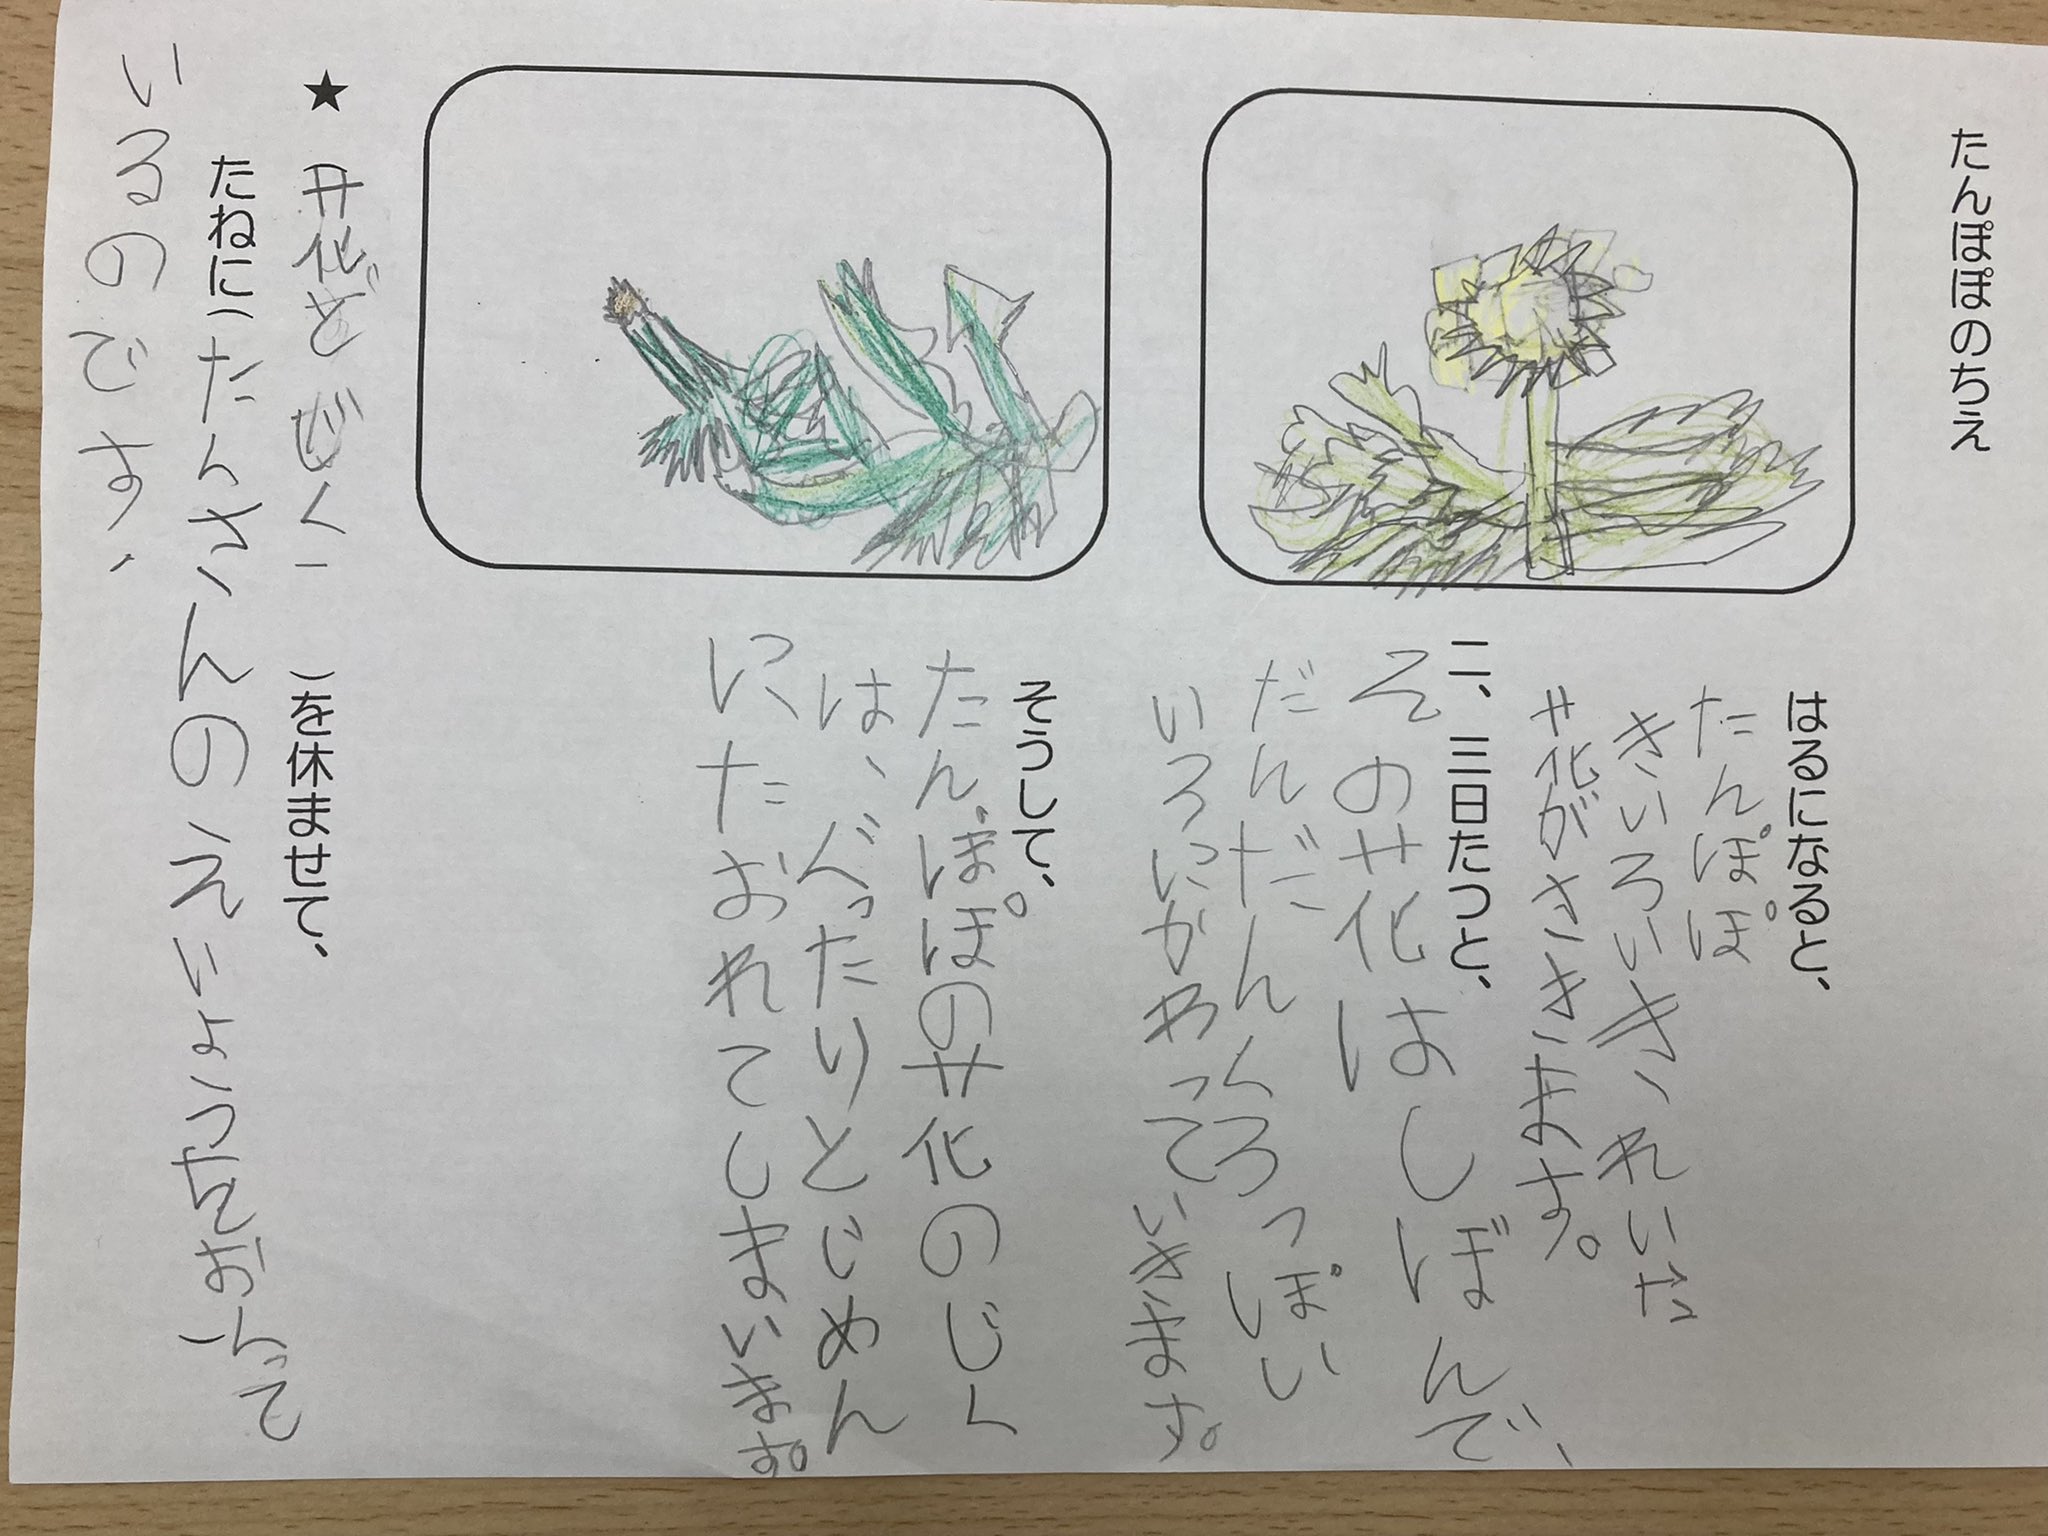 たんぽぽのちえ
はるになると、
たんぽぽ
きいろいきれいな
花がさきます。
二、三日たつと、
その花はしぼんで、
だんだんくろっぽい
いろにかわっていきます。
そうして、
たんぽぽの花のじく
は、ぐったりとじめん
に、たおれてしまいます。
★ 花とじく)を休ませて、
たねに(たくさんのえいようをおくって)
いるのです、